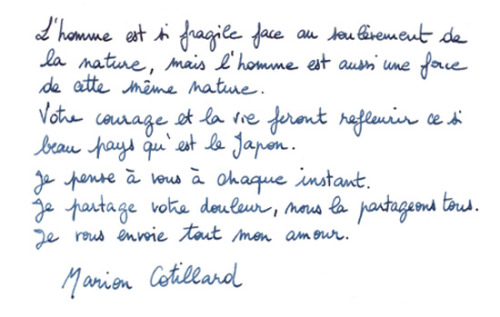 L'homme est si fragile face au soulèvement de
la nature, mais l'homme est aussi une force
de cette même nature.
Votre courage et la vie feront refleurir ce si
beau pays qu'est le Japon.
Je pense à vous à chaque instant.
Je partage votre douleur, nous la partageons tous.
Je vous envoie tout mon amour.
Marion Cotillard